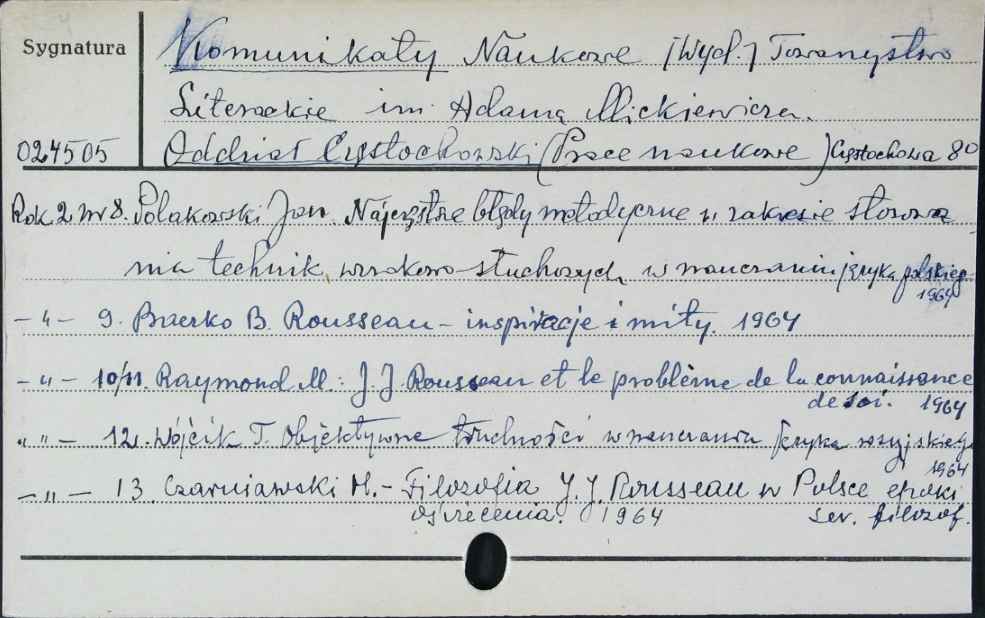 Sygnatura
Komunikaty Naukowe [Wyd.] Towarzystwo
Literackie im. Adama Mickiewicza.
024505 Oddział Częstochowski (Prace naukowe) Częstochowa 80
Rok 2 nr 8. Polakowski Jan. Najczęstsze błędy metodyczne w zakresie stosowa
nia technik wzrokowo-słuchowych w nauczaniu języka polskieg.
1964
– " – 9. Baczko B. Rousseau – inspiracje i mity. 1964
– " – 10/11. Raymond M. : J. J. Rousseau et le problème de la connaissance
de soi. 1964
" " – 12. Wójcik T. Objektywne trudności w nauczaniu języka rosyjskiego
1964
– " – 13 Czarniawski H. – Filozofia J. J. Rousseau w Polsce epoki
oświecenia. 1964 ser. filozof.